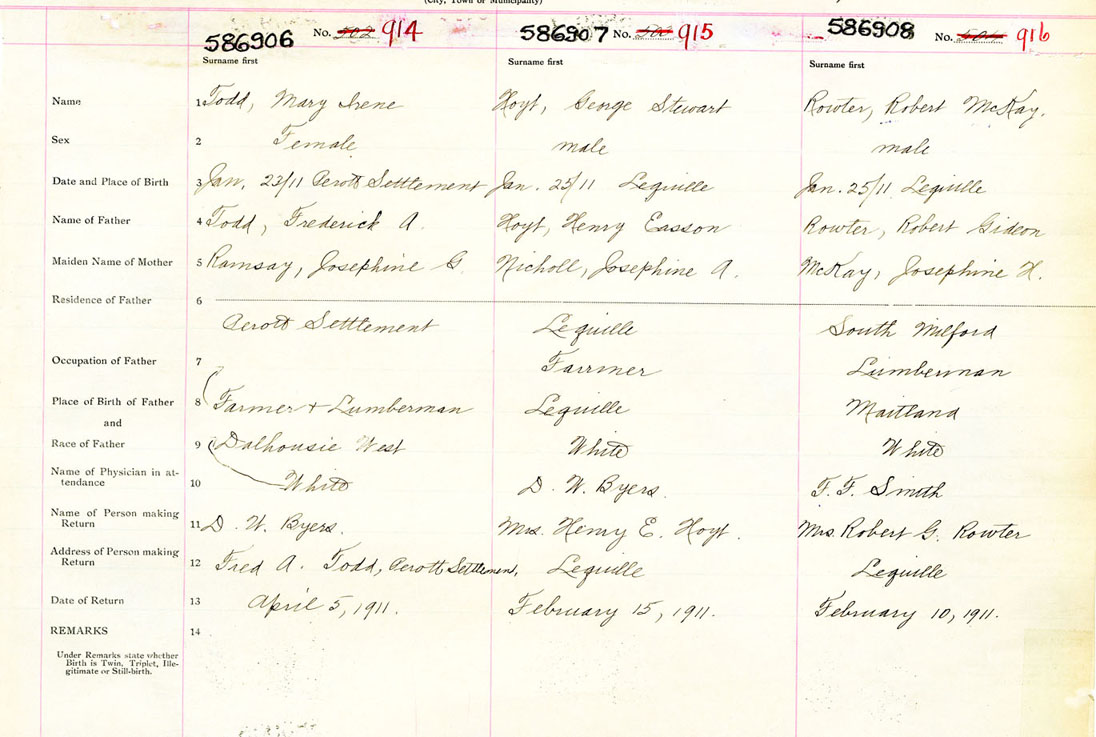 (City, Town or Municipality)
586906 No. 914 586907 No. 915 586908 No. 916
Surname first Surname first Surname first
Name 1 Todd, Mary Irene Hoyt, George Stewart Rowter, Robert McKay.
Sex 2 Female male male
Date and Place of Birth 3 Jan, 23/11 Perott Setttement Jan. 25/11 Lequille Jan. 25/11 Lequille
Name of Father 4 Todd, Frederick A. Hoyt, Henry Easson Rowter, Robert Gideon
Maiden Name of Mother 5 Ramsay, Josephine G. Nicholl, Josephine A. McKay, Josephine H.
Residence of Father 6
Perott Setttement Lequille South Milford
Occupation of Father 7 Farrmer Lumberman
Place of Birth of Father 8 Farmer + Lumberman Lequille Maitland
and
Race of Father 9 Dalhousie West White White
Name of Physician in at-
tendance 10 White D. W. Byers. F. F. Smith
Name of Person making
Return 11 D. W. Byers. Mrs. Henry E. Hoyt. Mrs. Robert G. Rowter
Address of Person making
Return 12 Fred A. Todd, Perott Settlemen, Lequille Lequille
Date of Return 13 April 5, 1911. February 15, 1911. February 10, 1911.
REMARKS 14
Under Remarks state whether
Birth is Twin, Triplet, Ille-
gitimate or Still-birth.